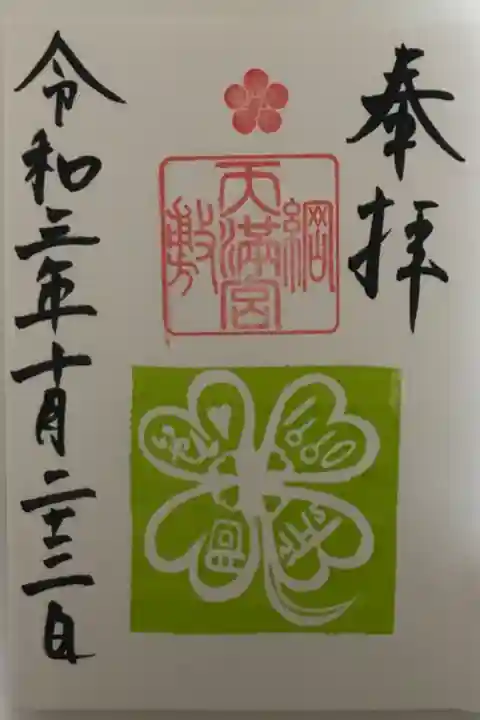 奉拝
綱敷天満宮
令和三年十月二十二日